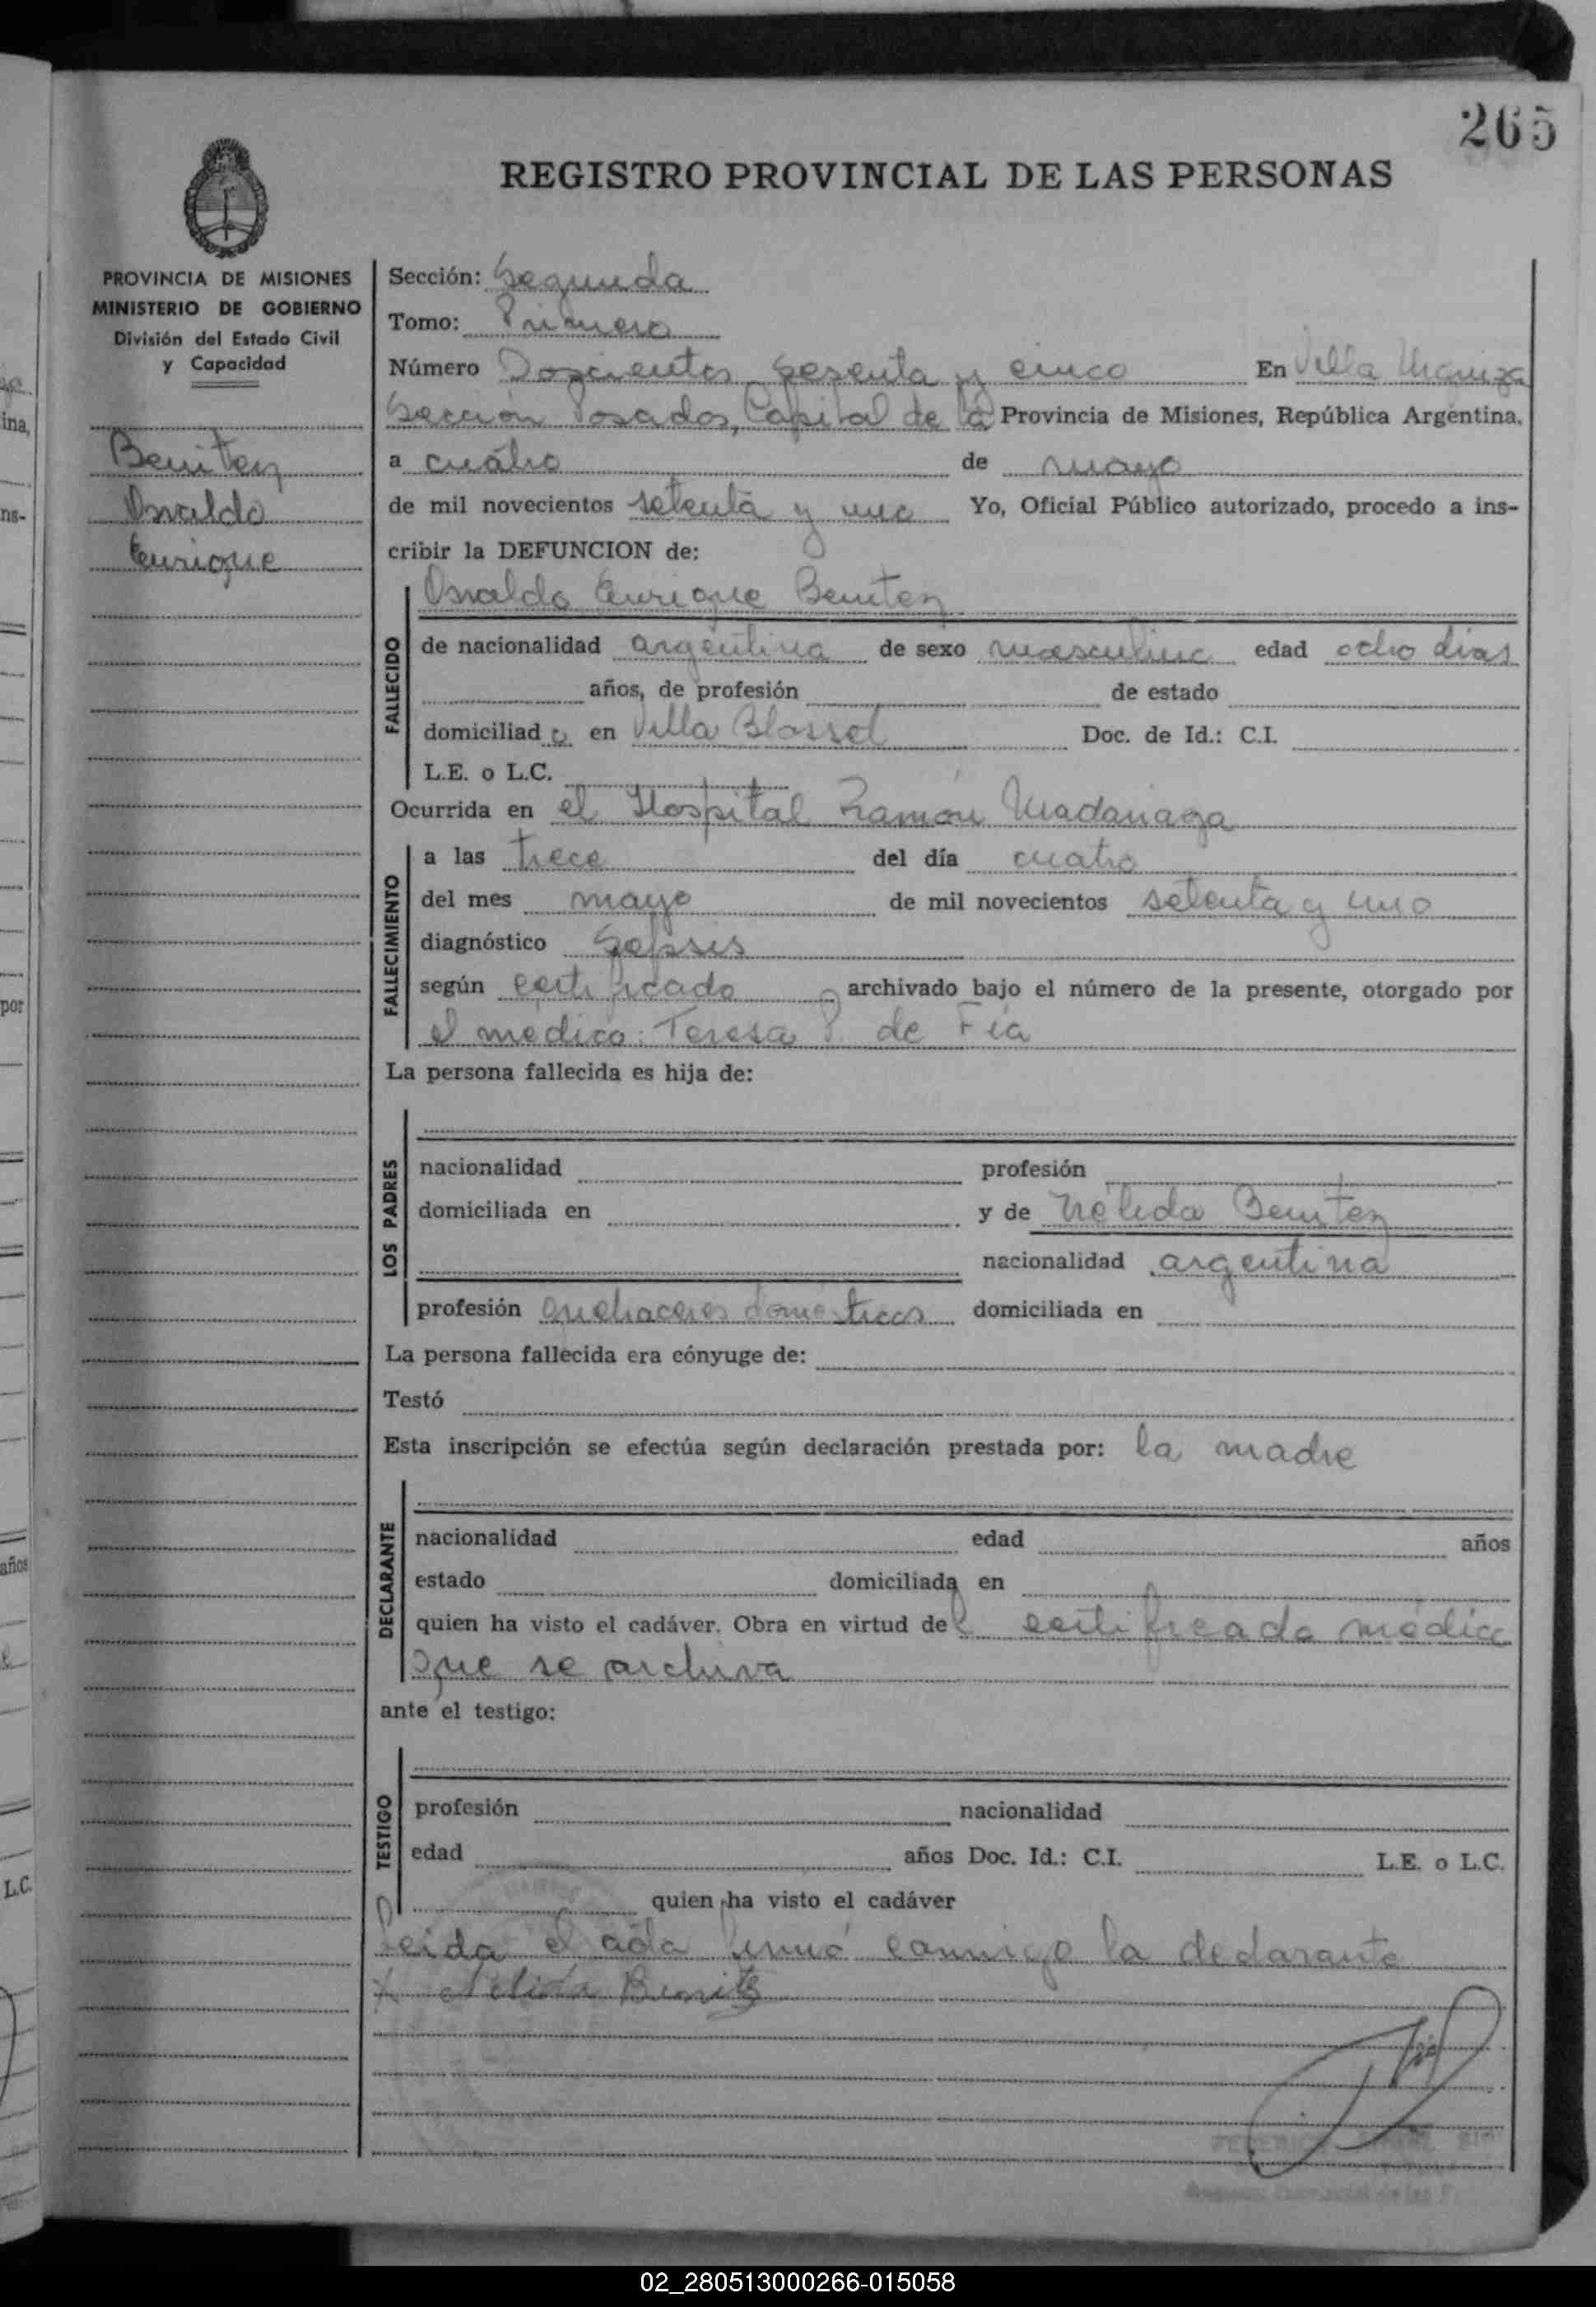 265
REGISTRO PROVINCIAL DE LAS PERSONAS
PROVINCIA DE MISIONES
MINISTERIO DE GOBIERNO
División del Estado Civil
y Capacidad
Benitez
Osvaldo
Enrique
Sección: Segunda
Tomo: Primero
Número Doscientos sesenta y cinco En Villa Urquiza
Sección Posadas, Capital de la Provincia de Misiones, República Argentina.
a cuatro de mayo
de mil novecientos setenta y uno Yo, Oficial Público autorizado, procedo a ins-
cribir la DEFUNCION de:
FALLECIDO
Osvaldo Enrique Benitez
de nacionalidad argentina de sexo masculino edad ocho días
años, de profesión de estado
domiciliado en Villa Blosset Doc. de Id.: C.I.
L.E. o L.C.
Ocurrida en el Hospital Ramón Madariaga
FALLECIMIENTO
a las trece del día cuatro
del mes mayo de mil novecientos setenta y uno
diagnóstico Sepsis
según certificado archivado bajo el número de la presente, otorgado por
el médico: Teresa P. de Fía
La persona fallecida es hija de:
LOS PADRES
nacionalidad profesión
domiciliada en y de Nélida Benitez
nacionalidad argentina
profesión quehaceres domésticos domiciliada en
La persona fallecida era cónyuge de:
Testó
Esta inscripción se efectúa según declaración prestada por: la madre
DECLARANTE
nacionalidad edad años
estado domiciliada en
quien ha visto el cadáver. Obra en virtud del certificado médico
que se archiva
ante el testigo:
TESTIGO
profesión nacionalidad
edad años Doc. Id.: C.I. L.E. o L.C.
quien ha visto el cadáver
Leida el acta firmó conmigo la declarante
x Nelida Benitez
02_280513000266-015058